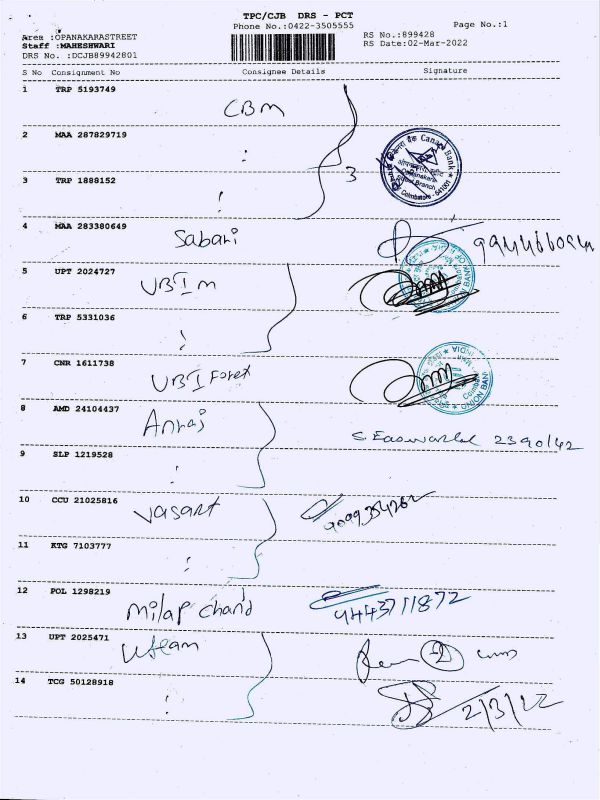 TPC/CJB DRS - PCT
Phone No.:0422-3505555
Page No.:1
Area :OPANAKARASTREET
RS No.:899428
Staff :MAHESHWARI
RS Date:02-Mar-2022
DRS No. :DCJB89942801
S No Consignment No Consignee Details Signature
1 TRP 5193749
CBM
2 MAA 287829719
3 TRP 1888152
3
Canara Bank
Coimbatore - 641001
4 MAA 283380649
Sabari
5 UPT 2024727
UBI M
6 TRP 5331036
7 CNR 1611738
UBI Forex
UNION BANK
INDIA
8 AMD 24104437
Anraj
9 SLP 1219528
10 CCU 21025816
Vasant
11 KTG 7103777
12 POL 1298219
Milap chand
9443711872
13 UPT 2025471
14 TCG 50128918
2/3/22